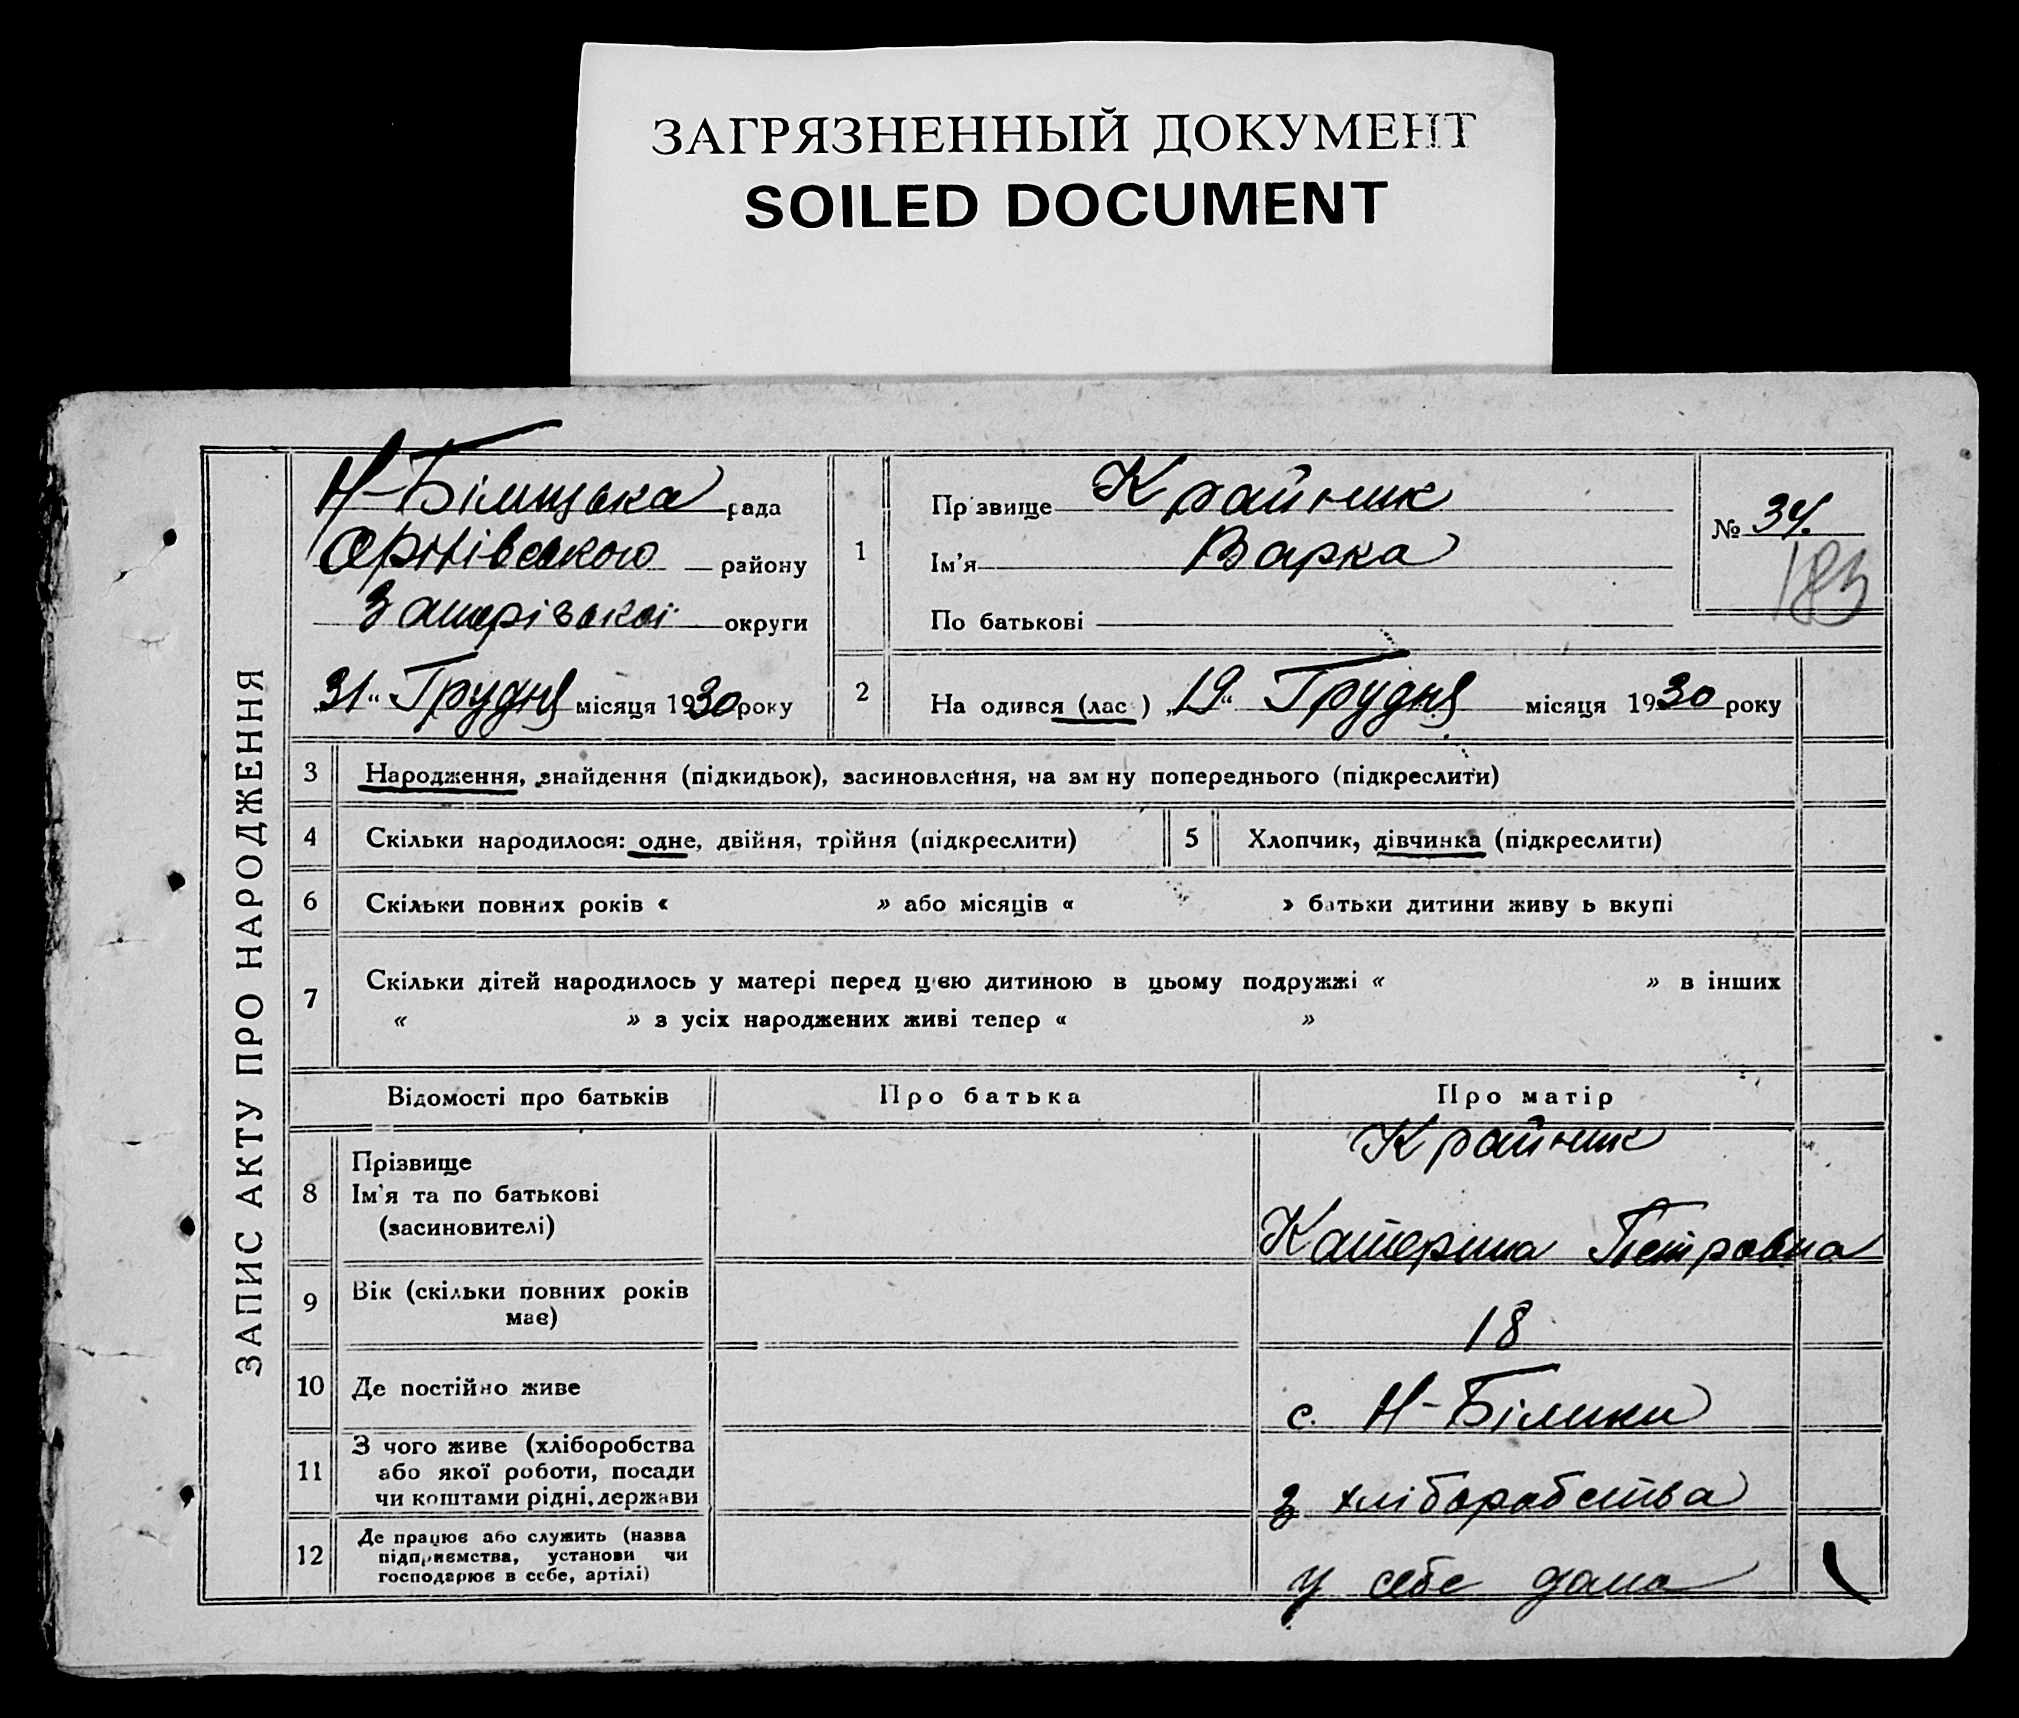 ЗАГРЯЗНЕННЫЙ ДОКУМЕНТ
SOILED DOCUMENT
ЗАПИС АКТУ ПРО НАРОДЖЕННЯ
Н-Білицька рада
Оріхівського району
Запорізької округи
„31“ Грудня місяця 1930 року
1
Прізвище Крайник
Ім'я Варка
По батькові
№ 34.
183
2
На одився (лас ) „19“ Грудня місяця 1930 року
3 Народження, знайдення (підкидьок), засиновлення, на зм ну попереднього (підкреслити)
4 Скільки народилося: одне, двійня, трійня (підкреслити)
5 Хлопчик, дівчинка (підкреслити)
6 Скільки повних років « » або місяців « » батьки дитини живу ь вкупі
7 Скільки дітей народилось у матері перед цією дитиною в цьому подружжі « » в інших
« » з усіх народжених живі тепер « »
Відомості про батьків Про батька Про матір
8 Прізвище
Ім'я та по батькові
(засиновителі)
Крайник
Катерина Петровна
9 Вік (скільки повних років
має)
18
10 Де постійно живе
с. Н-Білики
11 З чого живе (хліборобства
або якої роботи, посади
чи коштами рідні, держави
з хліборобства
12 Де працює або служить (назва
підприємства, установи чи
господарює в себе, артілі)
у себе дома